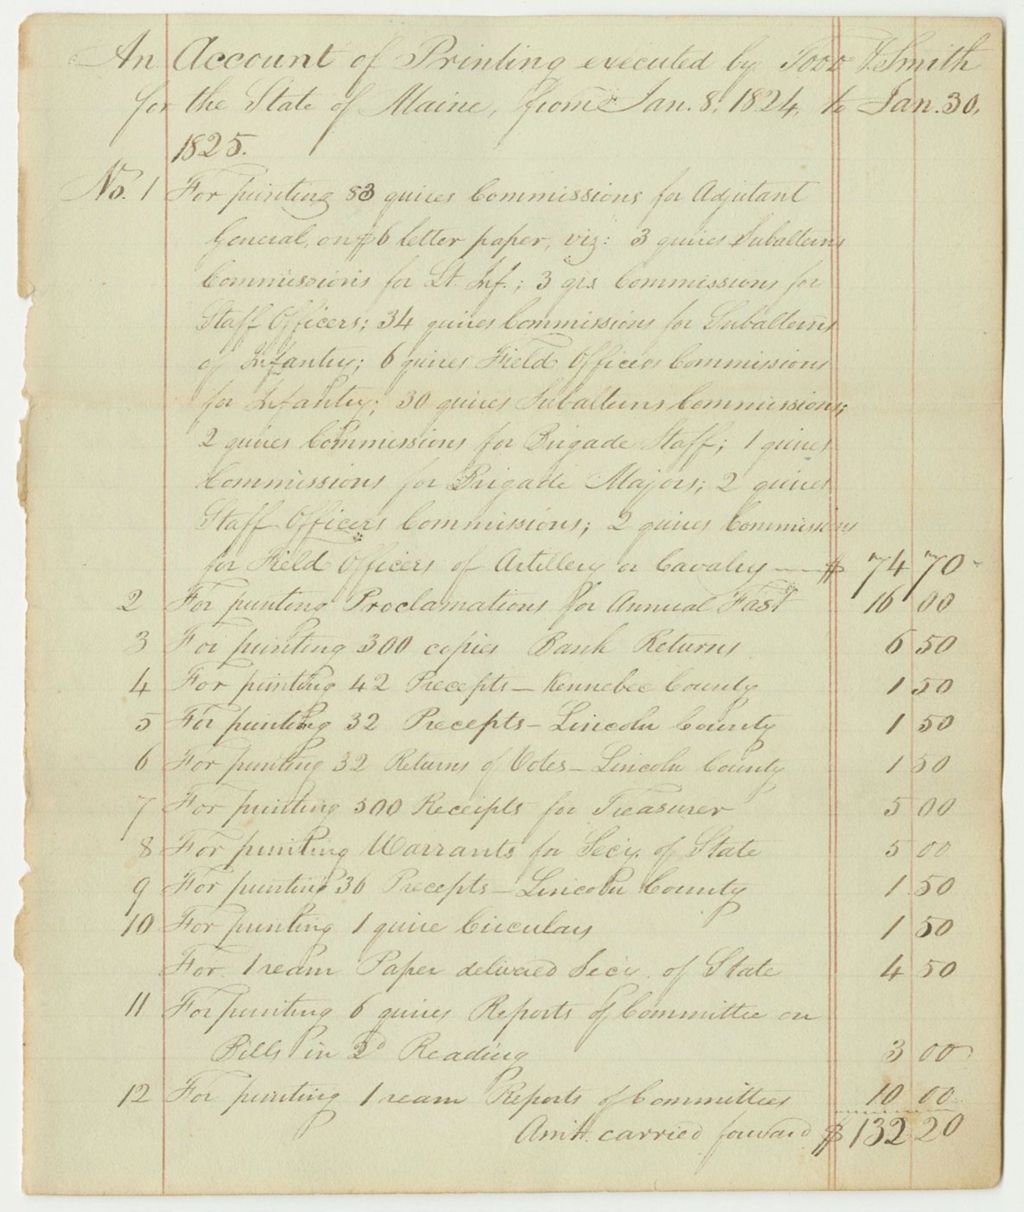 An Account of Printing executed by Todd & Smith
for the State of Maine, from Jan. 8, 1824, to Jan. 30,
1825.
No. 1 For printing 83 quires Commissions for Adjutant
General, on $6 letter paper, viz: 3 quires Subalterns
Commissions for Lt. Inf.; 3 qrs Commissions for
Staff Officers; 34 quires Commissions for Subalterns
of Infantry; 6 quires Field Officers Commissions
for Infantry; 30 quires Subalterns Commissions;
2 quires Commissions for Brigade Staff; 1 quires
Commissions for Brigade Majors; 2 quires
Staff Officers Commissions; 2 quires Commissions
for Field Officers of Artillery or Cavalry — $ 74 70
2 For printing Proclamations for Annual Fast 16 00
3 For printing 300 copies Bank Returns 6 50
4 For printing 42 Precepts — Kennebec County 1 50
5 For printing 32 Precepts — Lincoln County 1 50
6 For printing 32 Returns of Votes — Lincoln County 1 50
7 For printing 500 Receipts for Treasurer 5 00
8 For printing Warrants for Secy. of State 5 00
9 For printing 36 Precepts — Lincoln County 1 50
10 For printing 1 quire Circulars 1 50
For 1 ream Paper delivered Secy. of State 4 50
11 For printing 6 quires Reports of Committee on
Bills in 2d Reading 3 00
12 For printing 1 ream Reports of Committees 10 00
Amt. carried forward $ 132 20